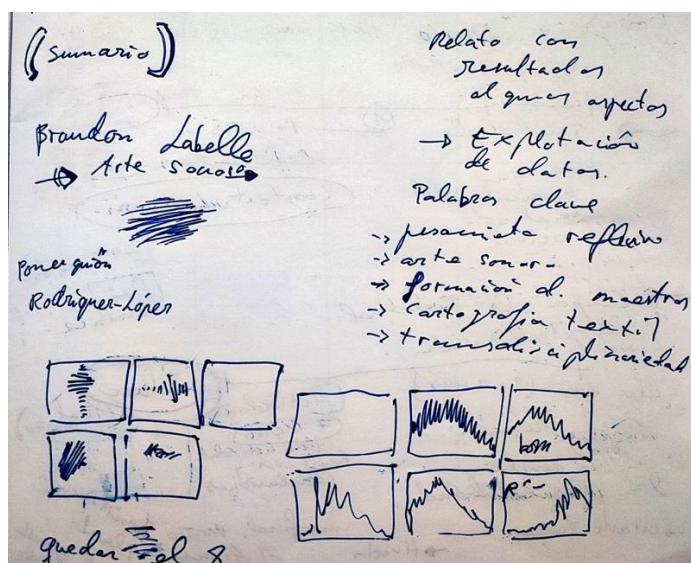 (sumario)
Brandon Labelle
→ Arte sonoro
Poner guión
Rodríguez-López
quedar el 8
Relato con
resultados
algunos aspectos
→ Explotación
de datos.
Palabras clave
→ pesamieto reflexivo
→ arte sonoro
→ formación d. maestros
→ Cartografía textil
→ transdisciplinariedad